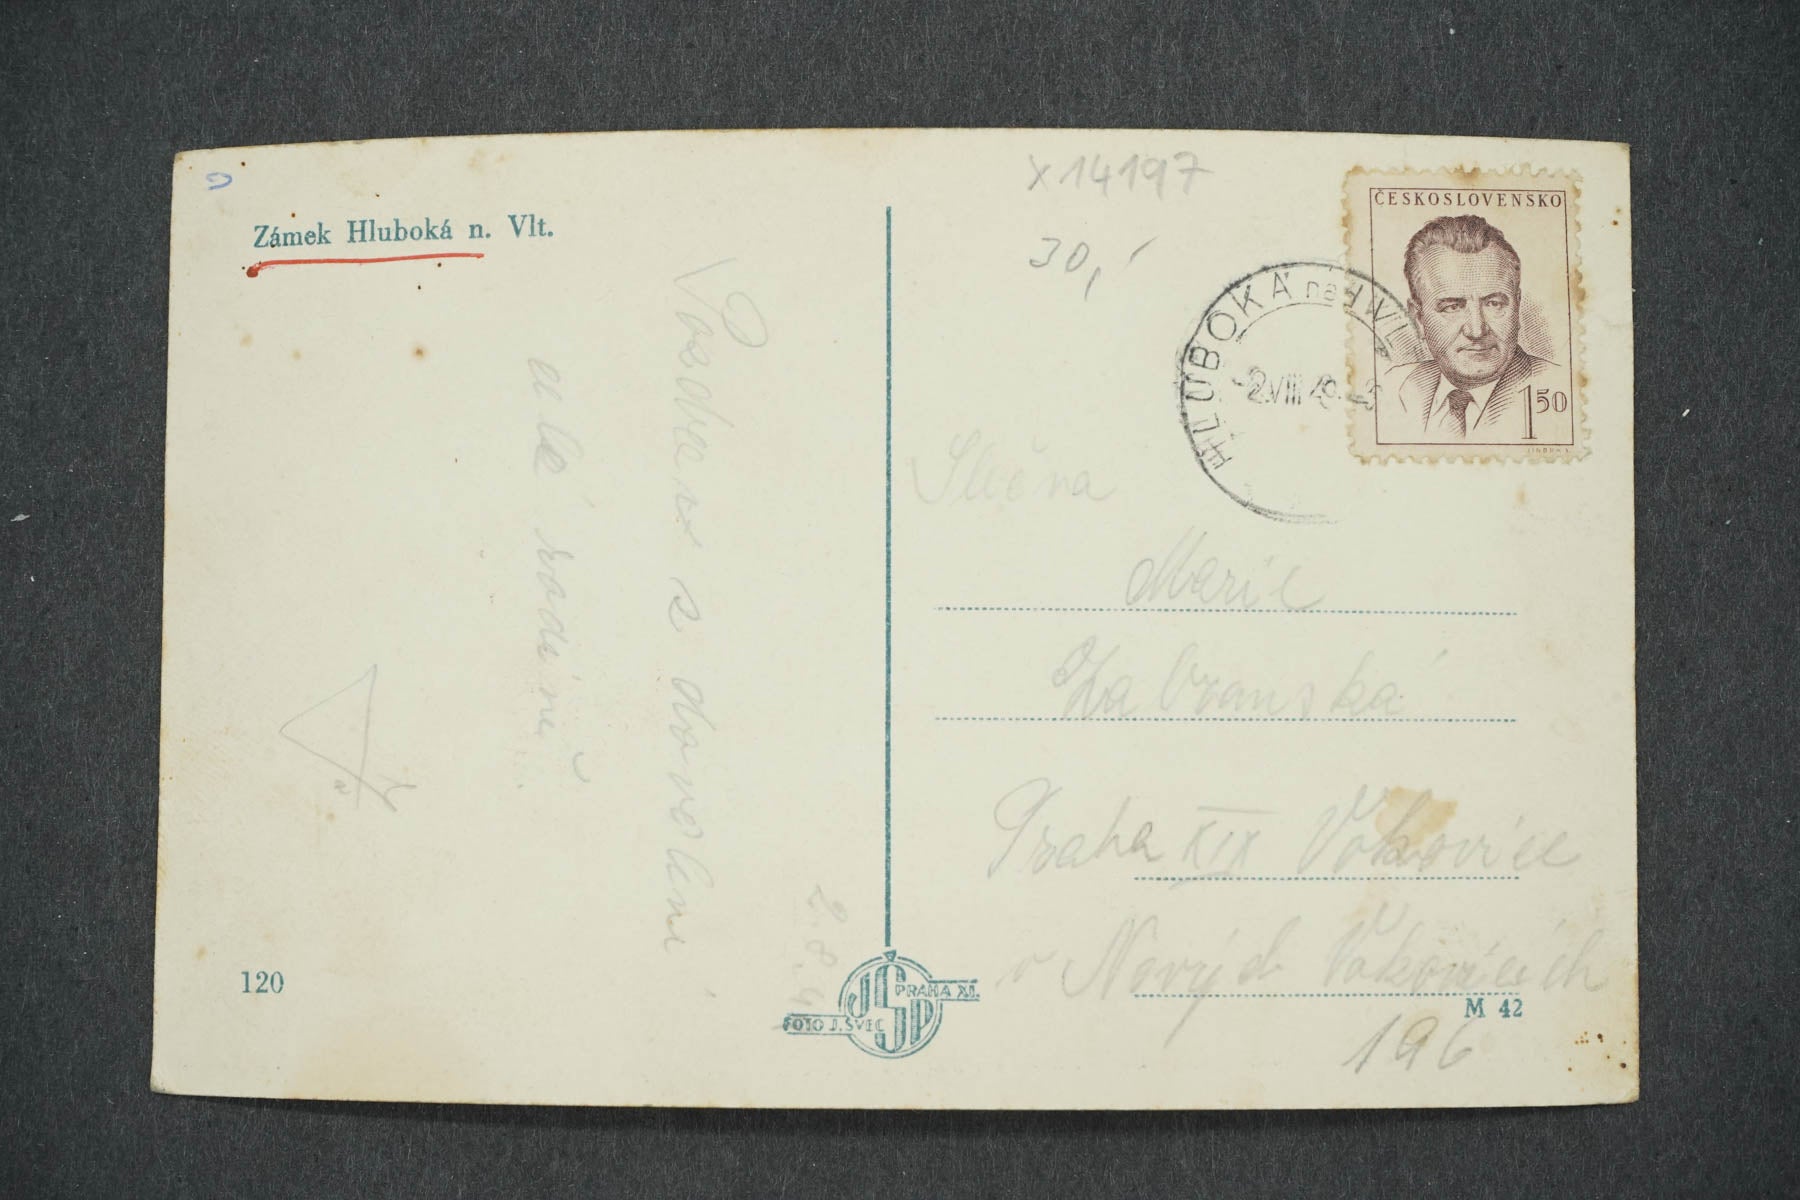 Zámek Hluboká n. Vlt.
x14197
30,-
ČESKOSLOVENSKO
1 50
HLUBOKÁ nad VL
2.VIII 49
Pozdrav z dovolené
celé rodině
2.8.
Slečna
Marie
Zabranská
Praha XIX Vokovice
v Nových Vokovicích
196
120
JŠP
PRAHA XI.
FOTO J. ŠVEC
M 42